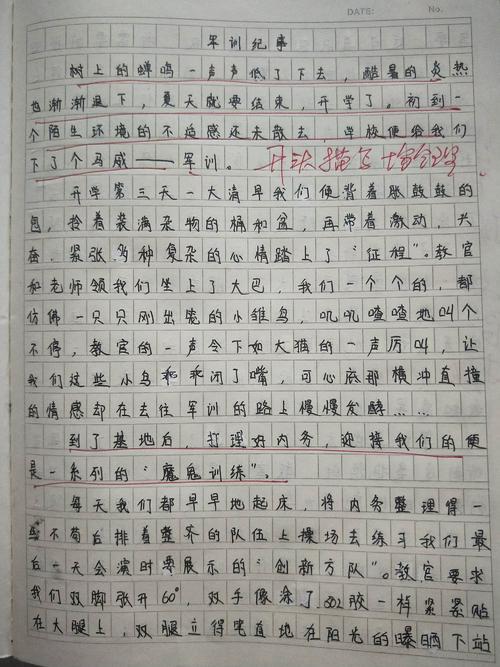 DATE: No.
军训纪事
树上的蝉鸣一声声低了下去，酷暑的炎热
也渐渐温下，夏天就要结束，开学了。初到一
个陌生环境的不适感还未散去，学校便给我们
下了个马威——军训。 开头描写增合理
开学第三天一大清早我们便背着胀鼓鼓的
包，拎着装满杂物的桶和盆，再带着激动，兴
奋，紧张多种复杂的心情踏上了“征程”。教官
和老师领我们坐上了大巴，我们一个个的，都
仿佛一只只刚出笼的小雏鸟，叽叽喳喳地叫个
不停，教官的一声令下如大猫的一声厉叫，让
我们这些小鸟乖乖闭了嘴，可心底那横冲直撞
的情感却在去往军训的路上慢慢发酵……
到了基地后，打理好内务，迎接我们的便
是一系列的“魔鬼训练”。
每天我们都早早地起床，将内务整理得一
丝不苟后排着整齐的队伍上操场去练习我们最
后一天会演时要展示的“创新方队”。教官要求
我们双脚张开60°，双手像涂了502胶一样紧紧贴
在大腿上，双腿立得笔直地在阳光的曝晒下站